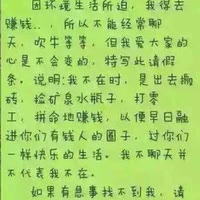 因环境生活所迫，我得去
赚钱..，所以不能经常聊
天，吹牛等等，但我爱大家的
心是不会变的，特写此请假
条。说明:我不在时，是出去搬
砖，捡矿泉水瓶子，打零
工，拼命地赚钱，以便早日融
进你们有钱人的圈子，过你们
一样快乐的生活。我不聊天并
不代表我不在。
如果有急事找不到我，请